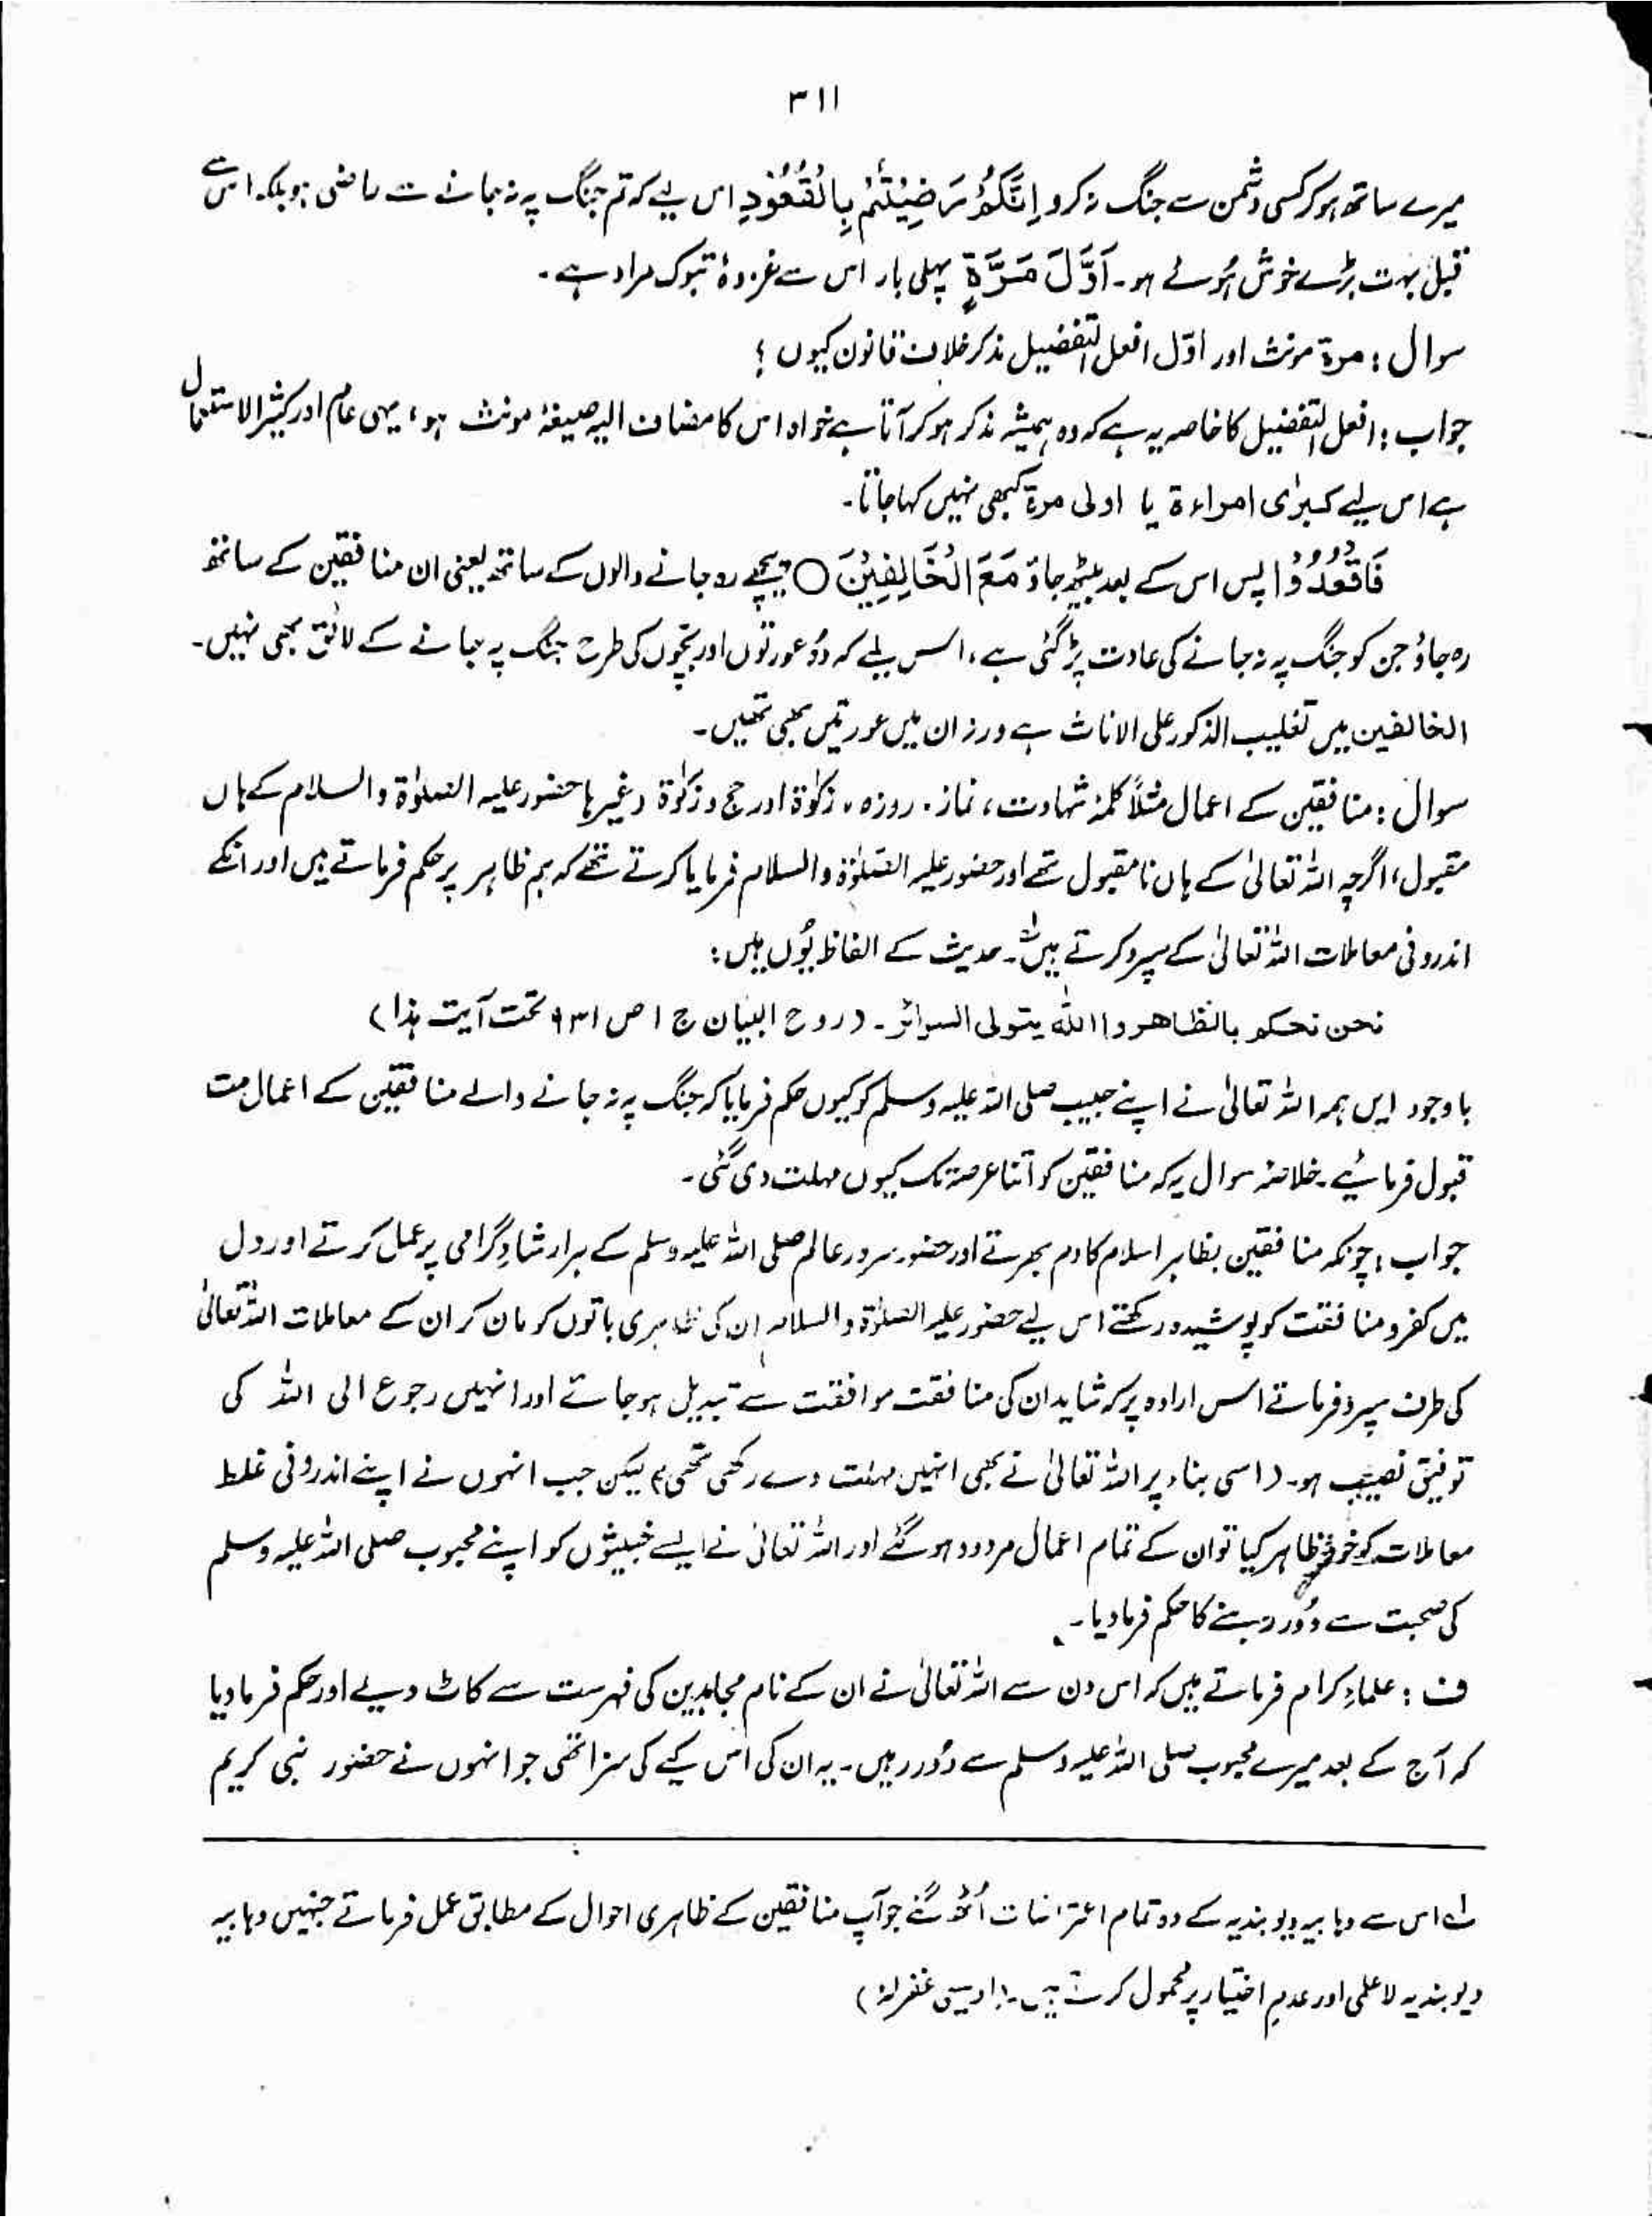 ۳۱۱
میرے ساتھ ہو کر کسی دشمن سے جنگ نہ کرو اِنَّكُمْ رَضِیْتُمْ بِالْقُعُوْدِ اس لیے کہ تم جنگ پہ نہ جانے سے راضی ہو بلکہ اس سے
قبل بہت بڑے خوش ہُوئے ہو۔ اَوَّلَ مَرَّةٍ پہلی بار اس سے غزوۂ تبوک مراد ہے۔
سوال : مرۃ مونث اور اوّل افعل التفضیل مذکر خلاف قانون کیوں ؟
جواب : افعل التفضیل کا خاصہ یہ ہے کہ وہ ہمیشہ مذکر ہو کر آتا ہے خواہ اس کا مضاف الیہ صیغۂ مونث ہو ، یہی عام اور کثیر الاستعمال
ہے اس لیے کبرٰی امراءۃ یا اولی مرۃ کبھی نہیں کہا جاتا۔
فَاقْعُدُوْا پس اس کے بعد بیٹھ جاؤ مَعَ الْخَالِفِیْنَ ○ پیچھے رہ جانے والوں کے ساتھ یعنی ان منافقین کے ساتھ
رہ جاؤ جن کو جنگ پہ نہ جانے کی عادت پڑ گئی ہے ، اس لیے کہ وُہ عورتوں اور بچّوں کی طرح جنگ پہ جانے کے لائق بھی نہیں۔
الخالفین میں تغلیب الذکور علی الاناث ہے ورنہ ان میں عورتیں بھی تھیں۔
سوال : منافقین کے اعمال مثلاً کلمۂ شہادت ، نماز ، روزہ ، زکوٰۃ اور حج و زکوٰۃ وغیرہا حضور علیہ الصلوٰۃ والسلام کے ہاں
مقبول ، اگرچہ اللہ تعالیٰ کے ہاں نامقبول تھے اور حضور علیہ الصلوٰۃ والسلام فرمایا کرتے تھے کہ ہم ظاہر پر حکم فرماتے ہیں اور انکے
اندرونی معاملات اللہ تعالیٰ کے سپرد کرتے ہیں۔ حدیث کے الفاظ یُوں ہیں :
نحن نحکم بالظاهر واللہ یتولی السرائر۔ (روح البیان ج ۱ ص ۹۳۱ تحت آیت ہذا)
باوجود ایں ہمہ اللہ تعالیٰ نے اپنے حبیب صلی اللہ علیہ وسلم کو کیوں حکم فرمایا کہ جنگ پہ نہ جانے والے منافقین کے اعمال مت
قبول فرمائیے۔ خلاصۂ سوال یہ کہ منافقین کو اتنا عرصہ تک کیوں مہلت دی گئی۔
جواب : چونکہ منافقین بظاہر اسلام کا دم بھرتے اور حضور سرور عالم صلی اللہ علیہ وسلم کے ہر ارشادِ گرامی پر عمل کرتے اور دل
میں کفر و منافقت کو پوشیدہ رکھتے اس لیے حضور علیہ الصلوٰۃ والسلام ان کی ظاہری باتوں کو مان کر ان کے معاملات اللہ تعالیٰ
کی طرف سپرد فرماتے اس ارادہ پر کہ شاید ان کی منافقت موافقت سے تبدیل ہو جائے اور انہیں رجوع الی اللہ کی
توفیق نصیب ہو۔ (اسی بناء پر اللہ تعالیٰ نے بھی انہیں مہلت دے رکھی تھی) لیکن جب انہوں نے اپنے اندرونی غلط
معاملات کو خود ظاہر کیا تو ان کے تمام اعمال مردود ہو گئے اور اللہ تعالیٰ نے ایسے خبیثوں کو اپنے محبوب صلی اللہ علیہ وسلم
کی صحبت سے دُور رہنے کا حکم فرما دیا۔
ف : علماءِ کرام فرماتے ہیں کہ اس دن سے اللہ تعالیٰ نے ان کے نام مجاہدین کی فہرست سے کاٹ دیے اور حکم فرما دیا
کہ آج کے بعد میرے محبوب صلی اللہ علیہ وسلم سے دُور رہیں۔ یہ ان کی اس کیے کی سزا تھی جو انہوں نے حضور نبی کریم
لہ اس سے وہابیہ دیوبندیہ کے وہ تمام اعتراضات اُٹھ گئے جو آپ منافقین کے ظاہری احوال کے مطابق عمل فرماتے جنہیں وہابیہ
دیوبندیہ لاعلمی اور عدمِ اختیار پر محمول کرتے ہیں۔ (اویسی غفرلہٗ)